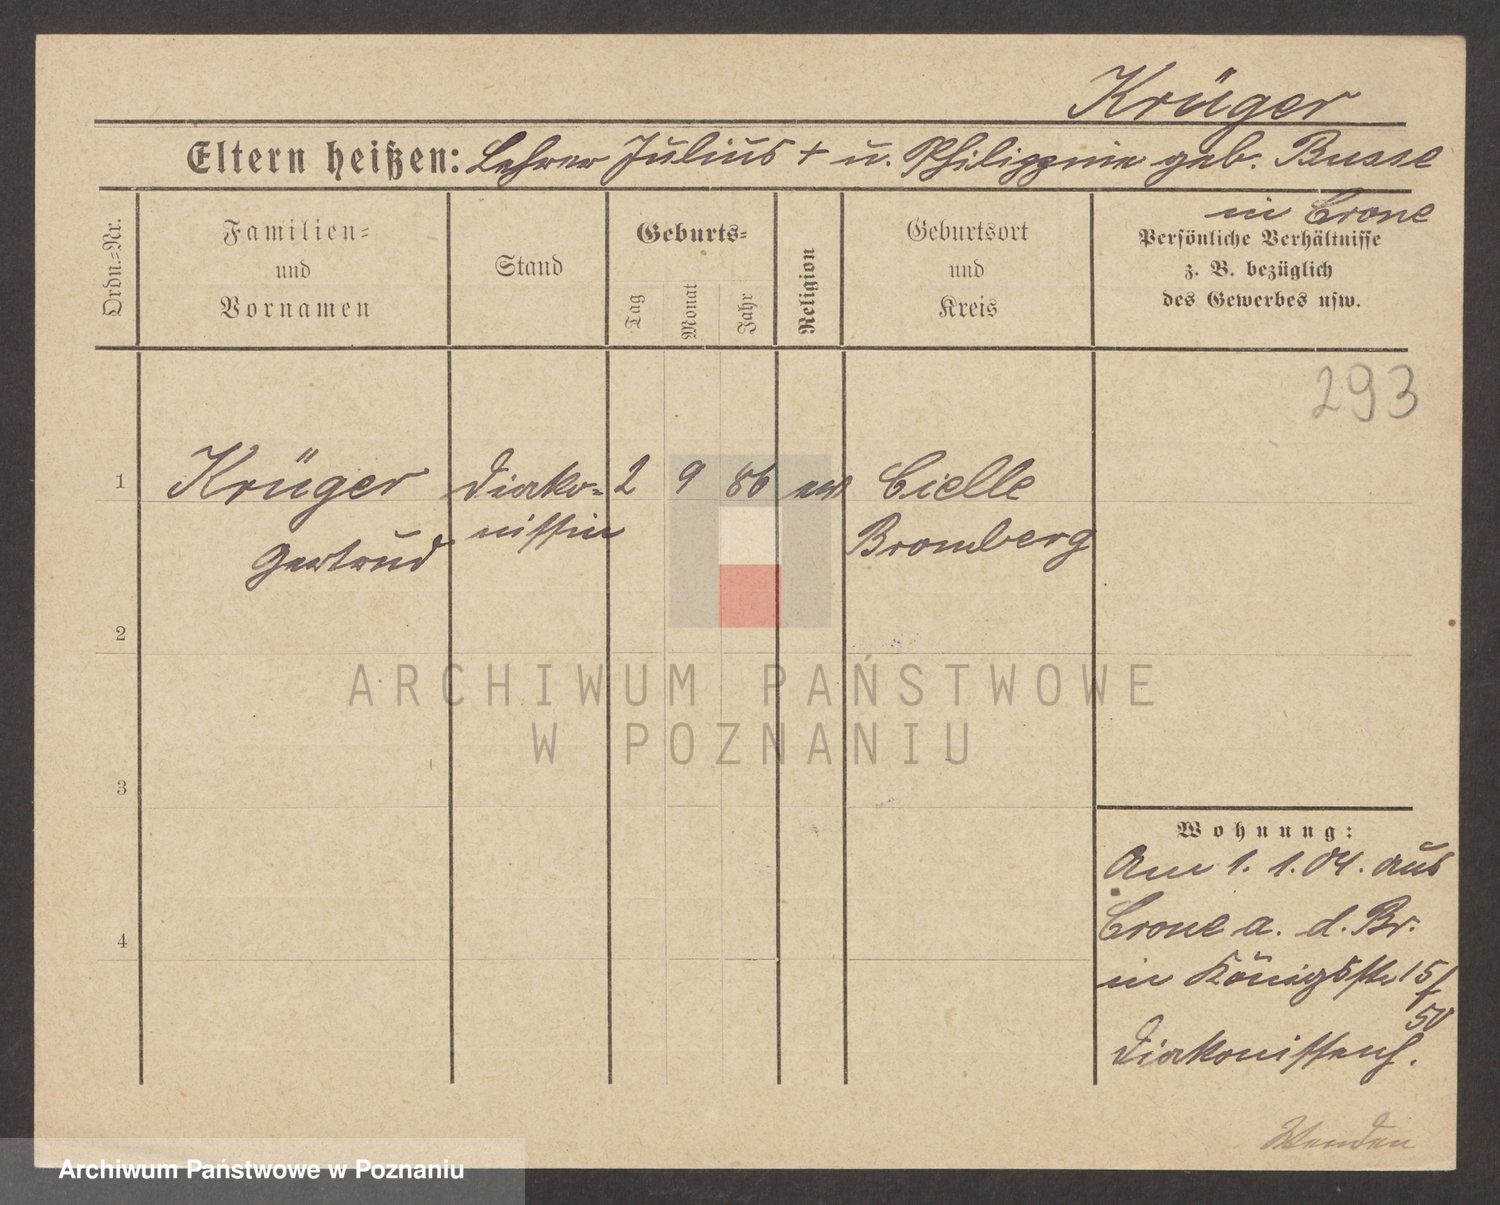 Krüger
Eltern heißen: Lehrer Julius + u. Philippine geb. Busse
in Crone
Ordn.-Nr.
Familien-
und
Vornamen
Stand
Geburts-
Tag
Monat
Jahr
Religion
Geburtsort
und
Kreis
Persönliche Verhältnisse
z. B. bezüglich
des Gewerbes usw.
293
1 Krüger Diako- 2 9 86 ev Cielle
Gertrud nissin Bromberg
2
ARCHIWUM PAŃSTWOWE
W POZNANIU
3
4
Wohnung:
Am 1. 1. 04. aus
Crone a. d. Br.
in Königstr 15/
50
Diakonissenh.
Wenden
Archiwum Państwowe w Poznaniu